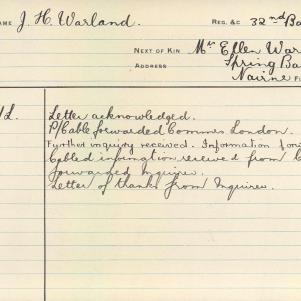 NAME J. H. Warland. REG. &C 32nd Ba
NEXT OF KIN Mrs Ellen War
ADDRESS Spring Ba
Nairne
/L. Letter acknowledged.
P/Cable forwarded Commrs London.
Further inquiry received. Information
Cabled information received from
forwarded Inquirer.
Letter of thanks from Inquirer.